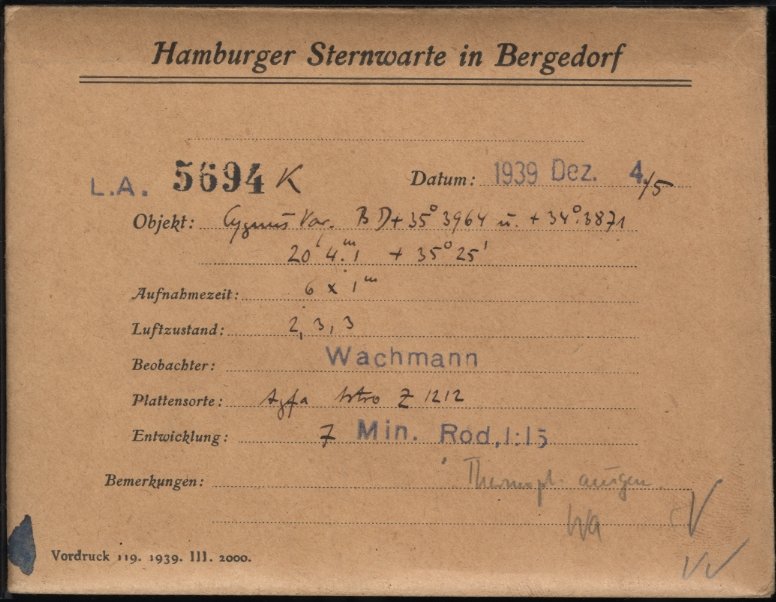 Hamburger Sternwarte in Bergedorf
L.A. 5694 K Datum: 1939 Dez. 4./5
Objekt: Cygnus Var. BD+35° 3964 u. +34°.3871
20ʰ 4.ᵐ1 + 35° 25'
Aufnahmezeit: 6 x 1ᵐ
Luftzustand: 2, 3, 3
Beobachter: Wachmann
Plattensorte: Agfa Astro Z 1212
Entwicklung: 7 Min. Rod. 1:15
Bemerkungen: Thermopl.
Wa
Vordruck 119. 1939. III. 2000.